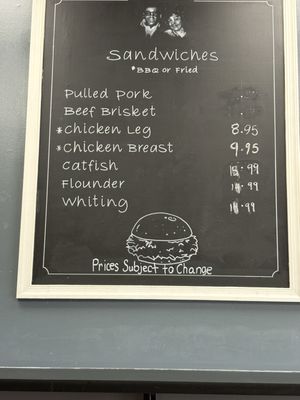 Sandwiches
*BBQ or Fried
Pulled Pork
Beef Brisket
*Chicken Leg 8.95
*Chicken Breast 9.95
Catfish
Flounder
Whiting
Prices Subject to Change